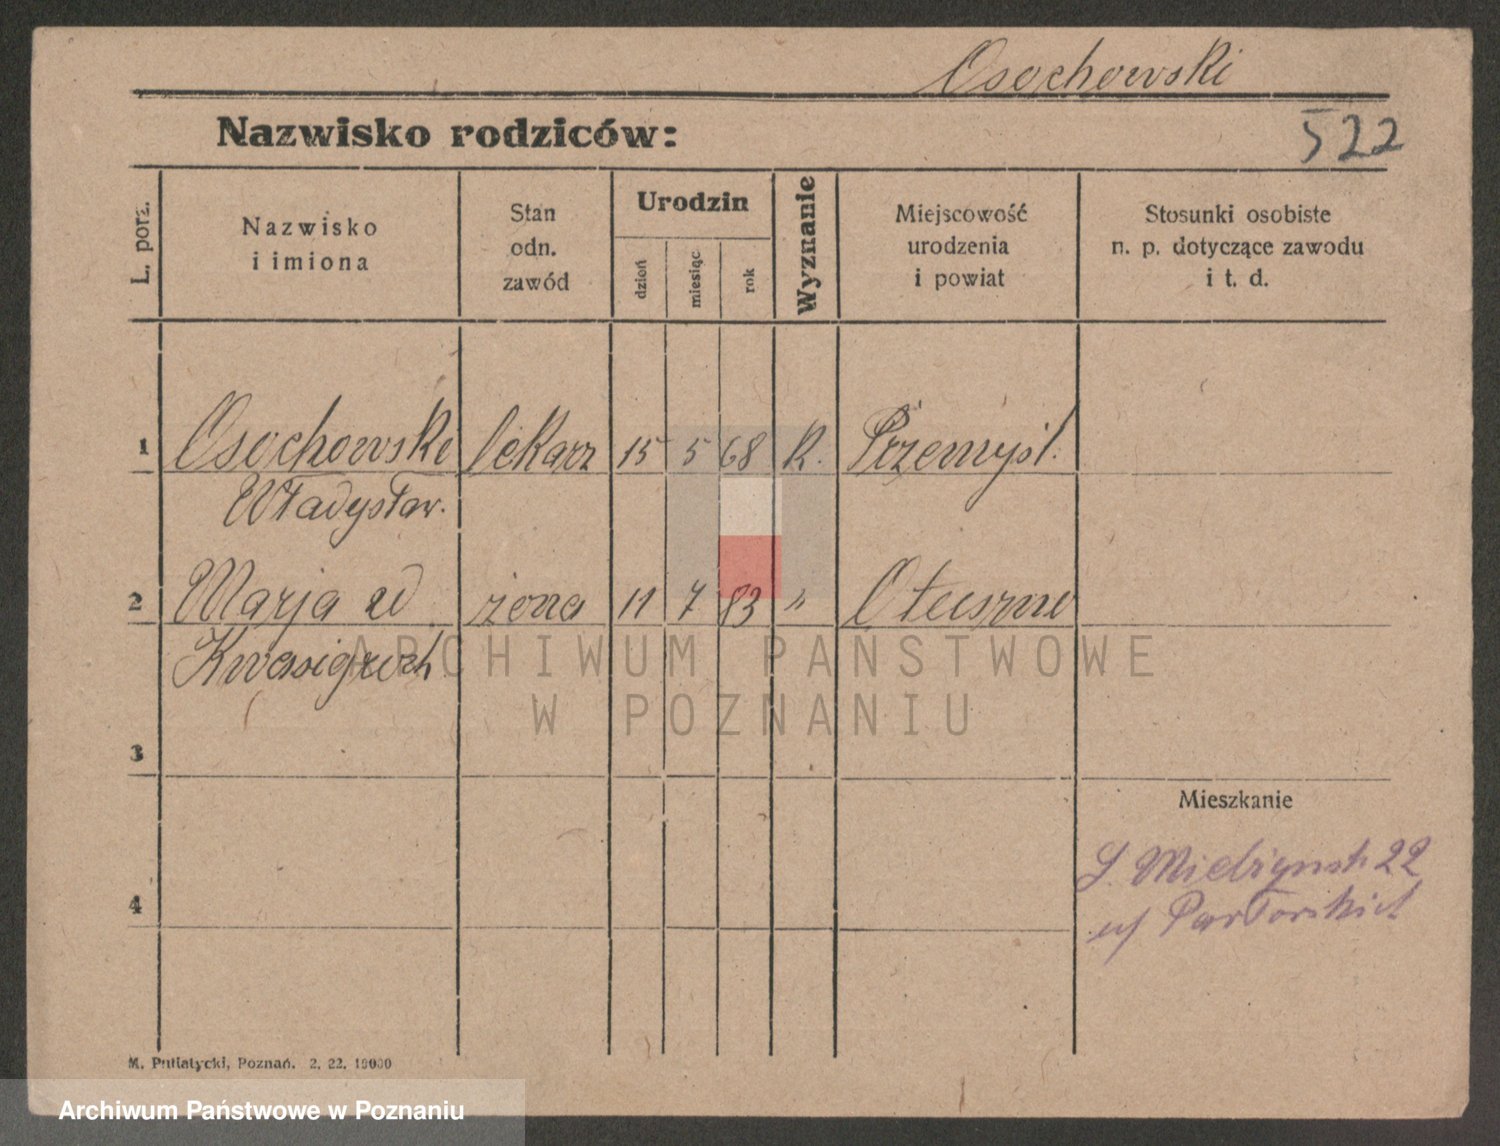 Osochowski
Nazwisko rodziców:
522
L. porz.
Nazwisko
i imiona
Stan
odn.
zawód
Urodzin
dzień
miesiąc
rok
Wyznanie
Miejscowość
urodzenia
i powiat
Stosunki osobiste
n. p. dotyczące zawodu
i t. d.
1 Osochowski lekarz 15 5 68 K. Przemyśl.
Władysław.
2 Marja żona 11 7 83 "
ARCHIWUM PAŃSTWOWE
W POZNANIU
3
Mieszkanie
22
4
M. Putiatycki, Poznań. 2. 22. 10000
Archiwum Państwowe w Poznaniu